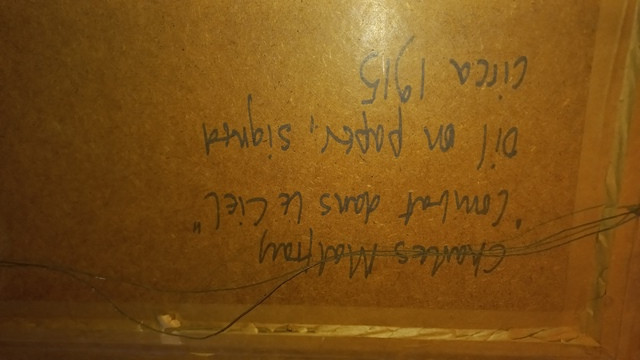 Charles Malfray
"Combat dans le Ciel"
Oil on paper, signed
circa 1915